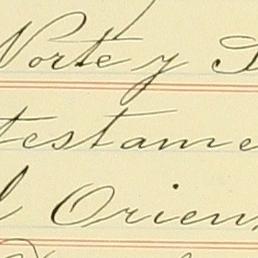 Norte y S
testame
l Orien